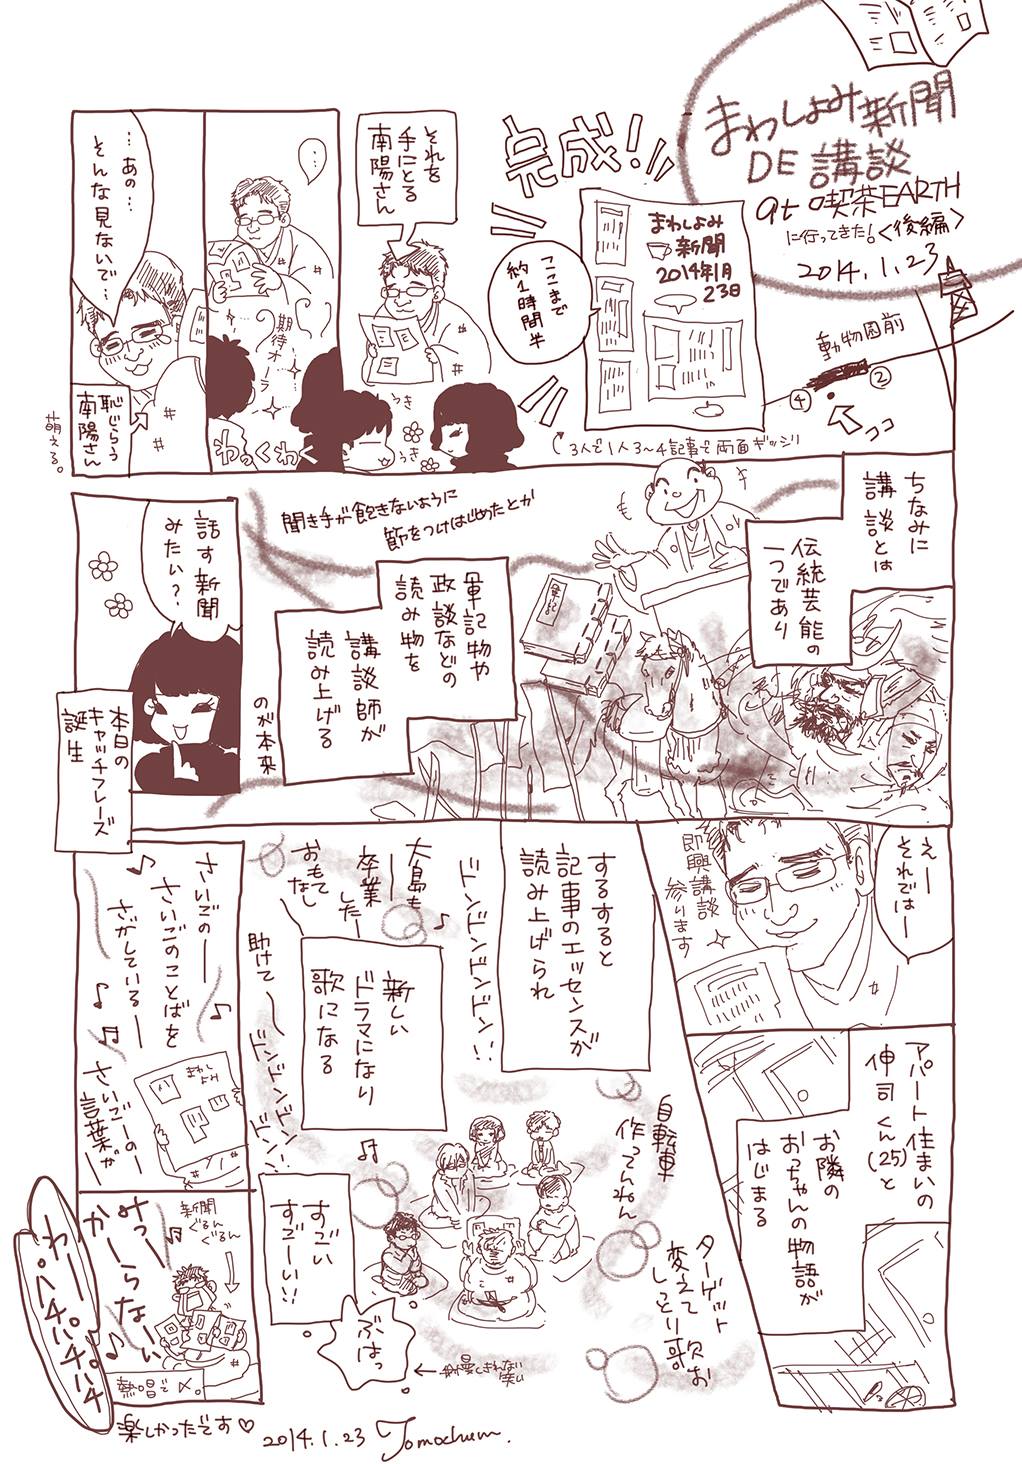 まわしよみ新聞
DE 講談
at 喫茶EARTH
に行ってきた!〈後編〉
2014.1.23
動物園前
②
④
ココ
完成!!
まわしよみ
新聞
2014年1月
23日
ここまで
約1時間半
3人で1人3〜4記事で両面ギッシリ
それを
手にとる
南陽さん
うき
うき
…
期待オーラ
わっくわく
…あの…
そんな見ないで…
恥じらう
南陽さん
萌える。
ちなみに
講談とは
伝統芸能の
一つであり
軍記
軍記物や
政談などの
読み物を
講談師が
読み上げる
のが本来
聞き手が飽きないように
節をつけはじめたとか
話す新聞
みたい?
本日の
キャッチフレーズ
誕生
えー
それではー
即興講談
参ります
アパート住まいの
伸司くん(25)と
お隣の
おっちゃんの物語が
はじまる
するすると
記事のエッセンスが
読み上げられ
ドンドンドンドン!!
新しい
ドラマになり
歌になる
大島も
卒業
したー
おもて
なし
助けてー
ドンドンドン!
ドンドン!
自転車
作ってんねん
ターゲット
変えて
しっとり歌お
すごい
すごーいい!
ぶはっ
←我慢しきれない
笑い
さいごのー
さいごのことばを
さがしているー
さいごーの
言葉がー
まわし
よみ
みつー
かーらなーい
新聞
ぐるん
ぐるん
熱唱で〆。
わーーパチパチパチ
楽しかったです♡
2014.1.23 Tomochum.